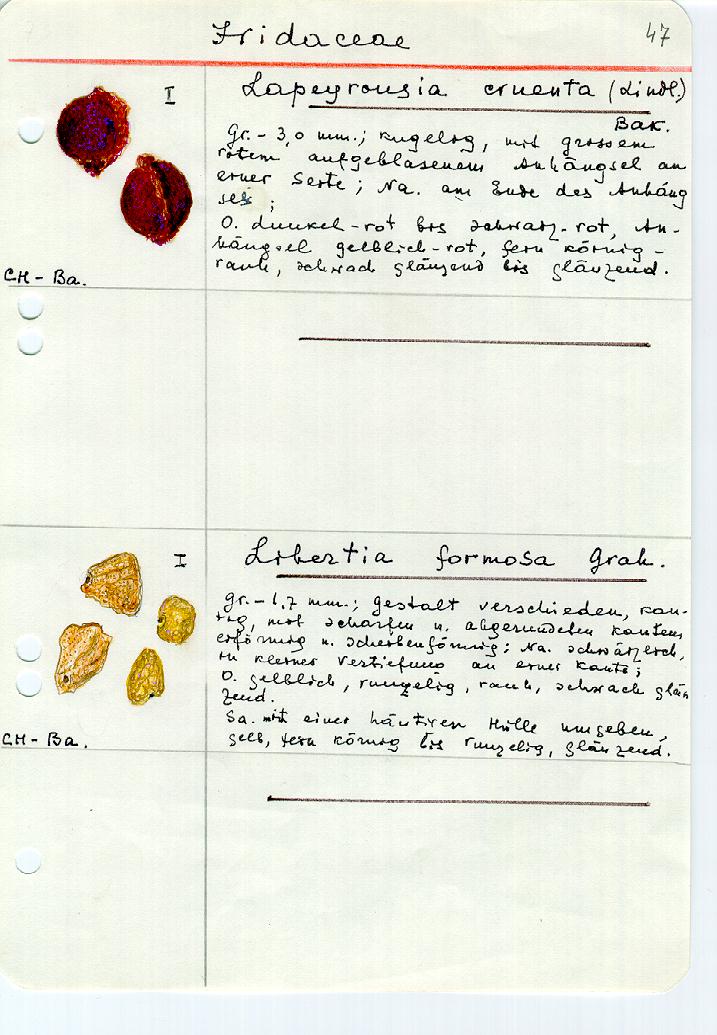 Iridaceae
47
I
Lapeyrousia cruenta (Lindl.)
Bak.
Gr. - 3,0 mm.; kugelig, mit grossem
rotem aufgeblasenem Anhängsel an
einer Seite; Na. am Ende des Anhäng
sels;
O. dunkel-rot bis schwarz-rot, An-
hängsel gelblich-rot, fein körnig-
rauh, schwach glänzend bis glänzend.
CH - Ba.
I
Libertia formosa Grah.
Gr. - 1,7 mm.; Gestalt verschieden, kan-
tig, mit scharfen u. abgerundeten Kanten,
eiförmig u. scheibenförmig; Na. schwärzlich,
in kleiner Vertiefung an einer Kante;
O. gelblich, runzelig, rauh, schwach glän
zend.
Sa. mit einer häutigen Hülle umgeben,
gelb, fein körnig bis runzelig, glänzend.
CH - Ba.